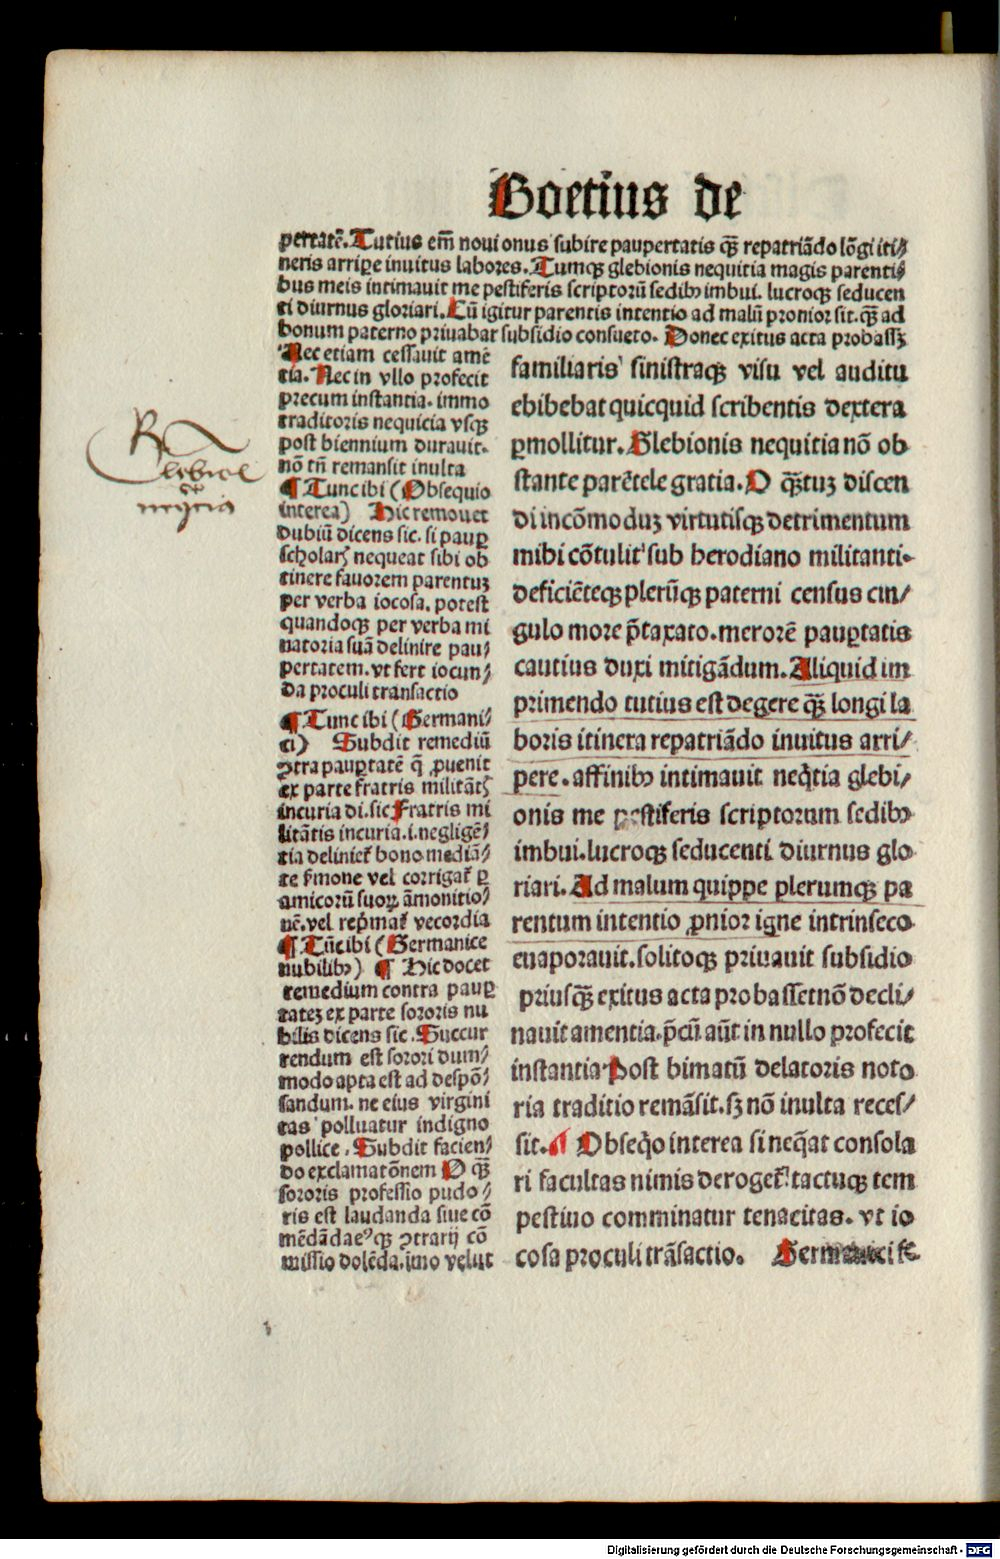 Boetius de
pertatē. Tutius em̄ noui onus subire paupertatis qȝ̄ repatriādo lōgi iti⸗
neris arripe inuitus labores. Tumqȝ glebionis nequitia magis parenti⸗
bus meis intimauit me pestiferis scriptorū sedibꝰ imbui. lucroqȝ seducen
ti diurnus gloriari. Cū igitur parentis intentio ad malū pronior sit. qȝ̄ ad
bonum paterno priuabar subsidio consueto. Donec exitus acta probassȝ
Nec etiam cessauit amē
tia. Nec in vllo profecit
precum instantia. immo
traditoris nequicia vsqȝ
post biennium durauit.
nō tn̄ remansit inulta
¶ Tunc ibi (Obsequio
interea) Hic remouet
dubiū dicens sic. si paup̱
scholarꝫ nequeat sibi ob
tinere fauorem parentuȝ
per verba iocosa. potest
quandoqȝ per verba mi
natoria suā delinire pau⸗
pertatem. vt fert iocun⸗
da proculi transactio
¶ Tunc ibi (Germani⸗
ci) Subdit remediū
ꝯtra paup̱tatē q̄ ꝓuenit
ex parte fratris militātꝫ
incuria di. sic Fratris mi
litātis incuria .i. negligē⸗
tia deliniet᷑ bono mediā⸗
te s̓mone vel corrigat᷑ p̱
amicorū suoꝝ āmonitio⸗
nē. vel rep̓mat᷑ vecordia
¶ Tūc ibi (Germanice
nubilibꝰ) ¶ Hic docet
remedium contra paup̱
tateȝ ex parte sororis nu
bilis dicens sic. Succur
rendum est sorori dum⸗
modo apta est ad despō⸗
sandum. ne eius virgini
tas polluatur indigno
pollice. Subdit facien⸗
do exclamatōnem O qȝ̄
sororis professio pudo⸗
ris est laudanda siue cō
mēdāda eꝰqȝ ꝯtrarij cō
missio dolēda. imo velut
familiaris sinistraqȝ visu vel auditu
ebibebat quicquid scribentis dextera
p̱mollitur. Glebionis nequitia nō ob
stante parētele gratia. O qȝ̄tuȝ discen
di incōmoduȝ virtutisqȝ detrimentum
mihi cōtulit sub herodiano militanti.
deficiēteqȝ plerūqȝ paterni census cin⸗
gulo more p̄taxato. merorē paup̱tatis
cautius duxi mitigādum. Aliquid im
primendo tutius est degere qȝ̄ longi la
boris itinera repatriādo inuitus arri⸗
pere. affinibꝰ intimauit neq̓tia glebi⸗
onis me pestiferis scriptorum sedibꝰ
imbui. lucroqȝ seducenti diurnus glo
riari. Ad malum quippe plerumqȝ pa
rentum intentio ꝓnior igne intrinseco
euaporauit. solitoqȝ priuauit subsidio
priusqȝ̄ exitus acta probasset nō decli⸗
nauit amentia. p̄cū aūt in nullo profecit
instantia Post bimatū delatoris noto
ria traditio remāsit. sȝ nō inulta reces⸗
sit. ¶ Obseq̓o interea si neq̓at consola
ri facultas nimis deroget᷑ tactuqȝ tem
pestiuo comminatur tenacitas. vt io
cosa proculi trāsactio. Germanici
nequitia
Digitalisierung gefördert durch die Deutsche Forschungsgemeinschaft - DFG